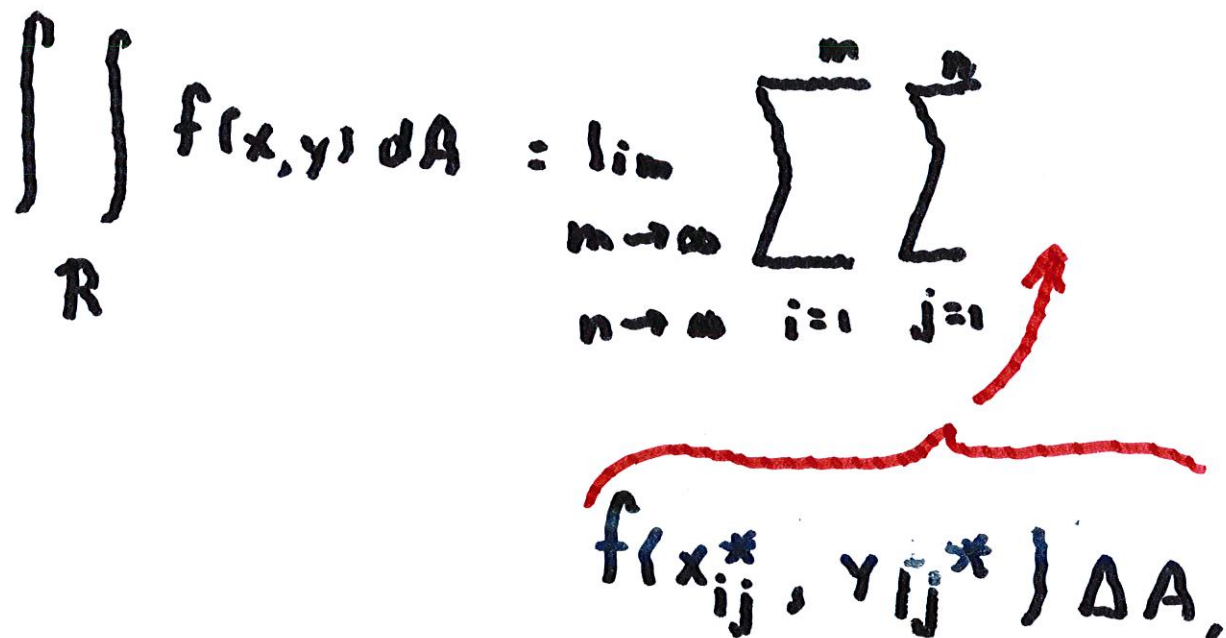 ∫∫ f(x,y) dA = lim ∑ ∑
R m→∞ i=1 m j=1 n
n→∞
f(x*ij, yij*) ΔA,